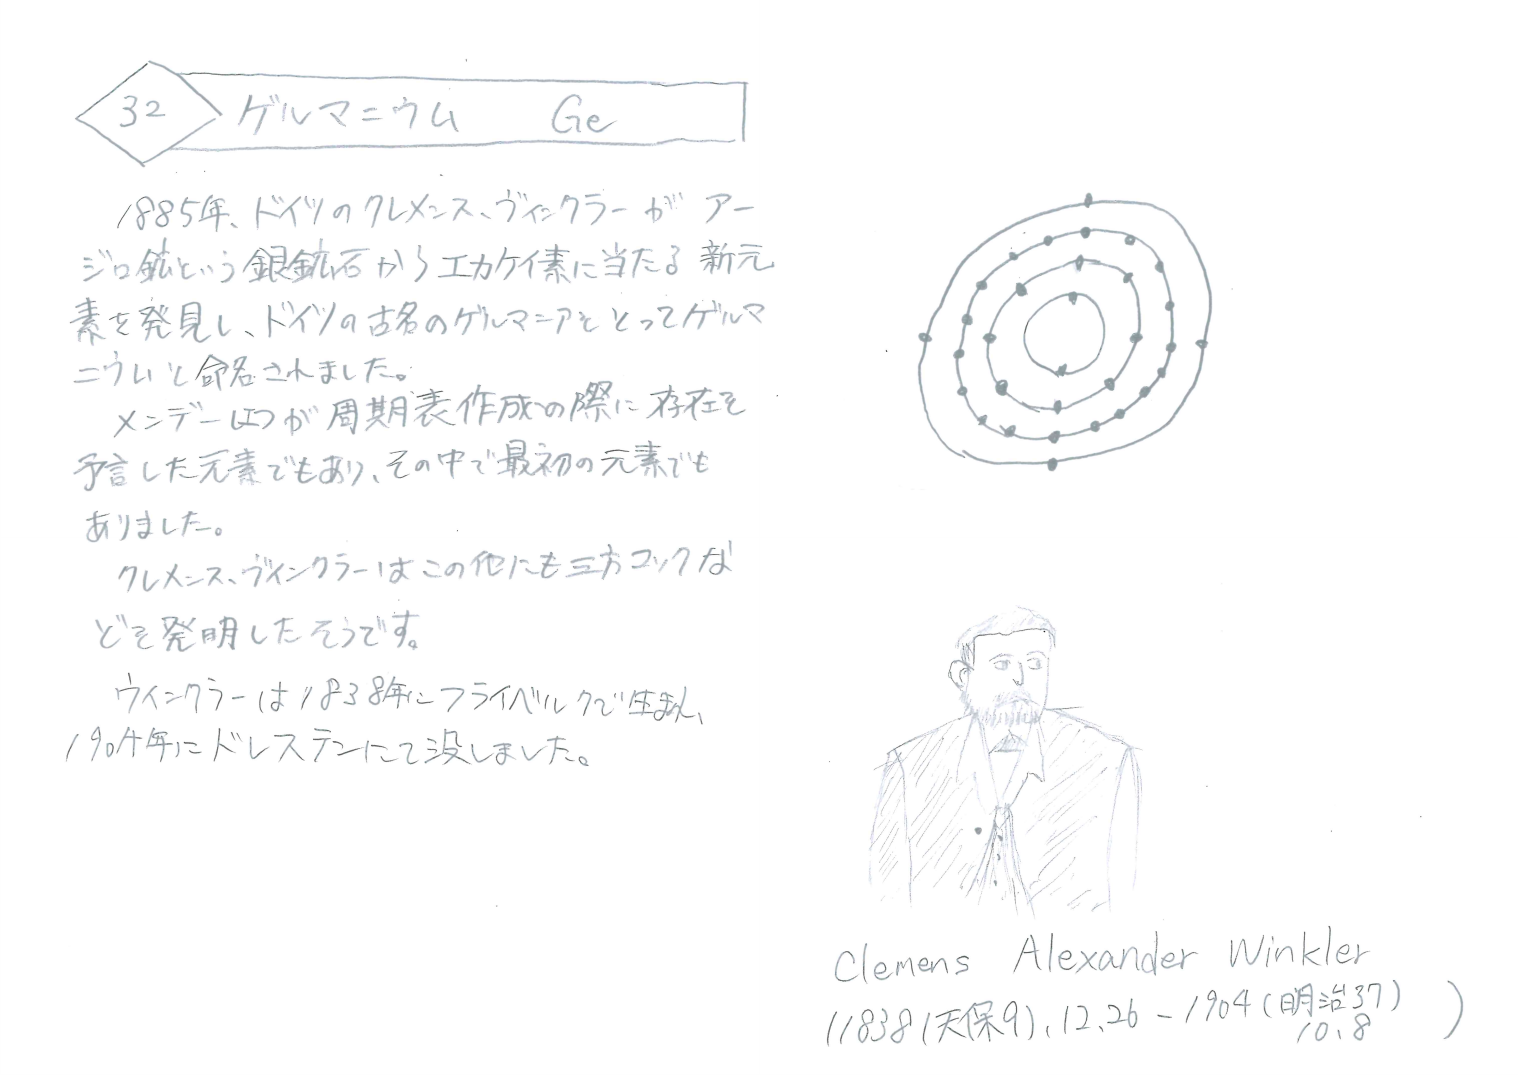 32 ゲルマニウム Ge
1885年、ドイツのクレメンス、ヴィンクラーが アー
ジロ鉱という銀鉱石からエカケイ素に当たる新元
素を発見し、ドイツの古名のゲルマニアをとってゲルマ
ニウムと命名されました。
メンデーレエフが周期表作成の際に存在を
予言した元素でもあり、その中で最初の元素でも
ありました。
クレメンス、ヴィンクラーはこの他にも三方コックな
どを発明したそうです。
ウィンクラーは1838年にフライベルクで生まれ、
1904年にドレステンにて没しました。
Clemens Alexander Winkler
(1838(天保9).12.26-1904(明治37)
10.8 )